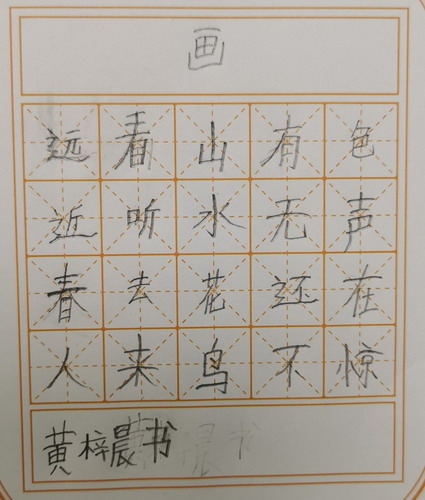 画
远看山有色
近听水无声
春去花还在
人来鸟不惊
黄梓晨书